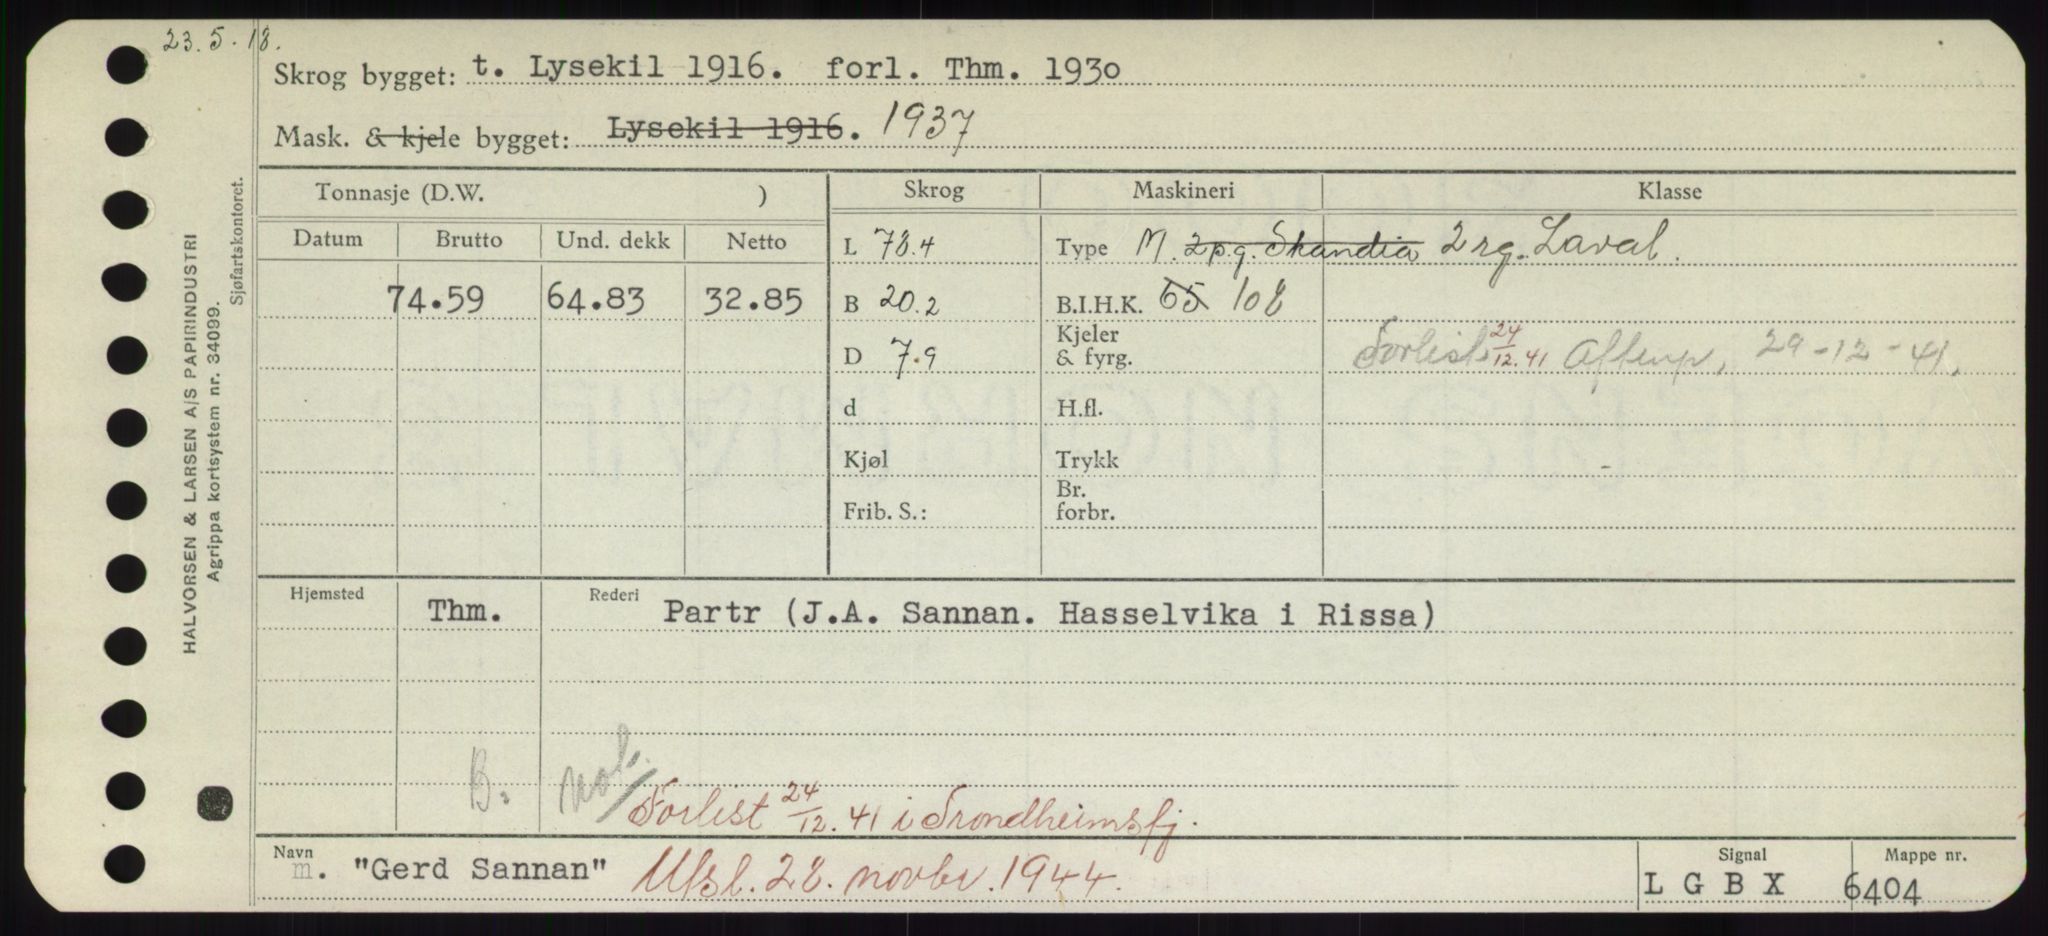 23.5.18.
Skrog bygget: t. Lysekil 1916. forl. Thm. 1930
Mask. & kjele bygget: Lysekil 1916. 1937
Tonnasje (D.W. ) Skrog Maskineri Klasse
Datum Brutto Und. dekk Netto L 78.4 Type M. 2 p.g. Skandia 2 rg. Laval.
74.59 64.83 32.85 B 20.2 B.I.H.K. 65 108
D 7.9 Kjeler & fyrg. Forlist 24/12.41 Aftenp. 29-12-41.
d H.fl.
Kjøl Trykk
Frib. S.: Br. forbr.
Hjemsted Thm. Rederi Partr (J.A. Sannan. Hasselvika i Rissa)
B.
Forlist 24/12.41 i Trondheimsfj.
Navn m. "Gerd Sannan" Utsl. 28. novbr. 1944. Signal L G B X Mappe nr. 6404
HALVORSEN & LARSEN A/S PAPIRINDUSTRI
Agrippa kortsystem nr. 34099.
Sjøfartskontoret.